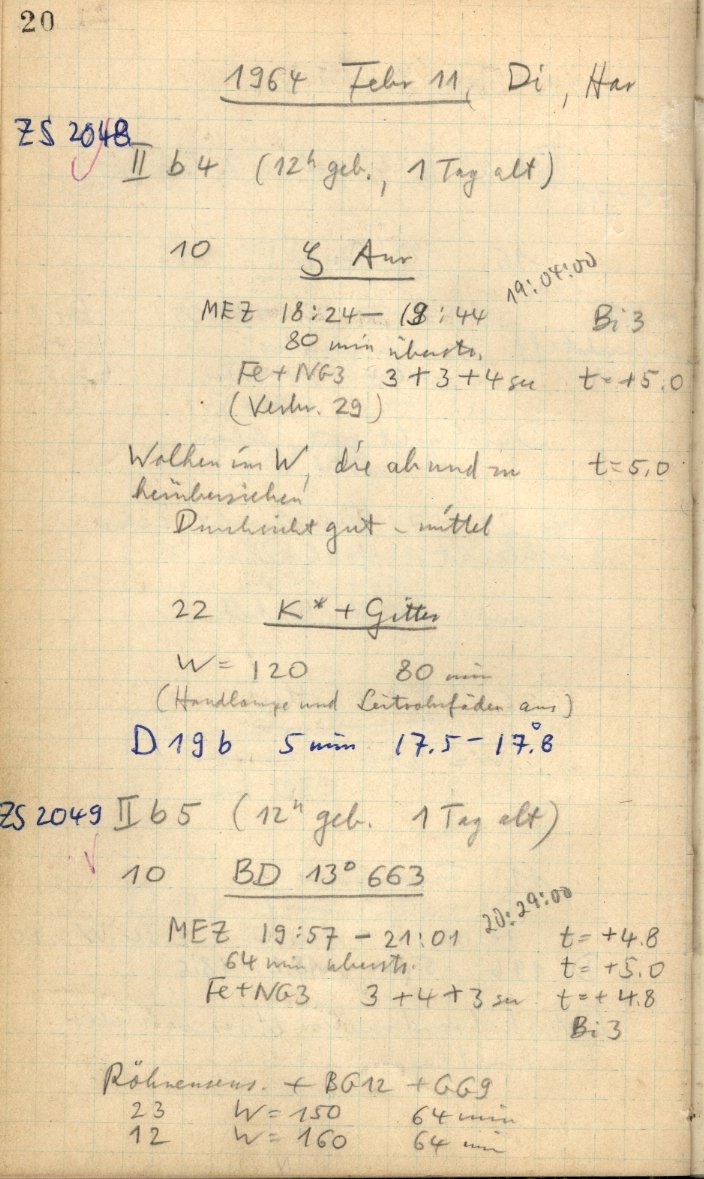 20
1964 Febr 11, Di, Har
ZS 2048
II b 4 (12h geb., 1 Tag alt)
10 ζ Aur
19:04:00
MEZ 18:24 – 19:44 Bi 3
80 min überstr.
Fe + NG3 3 + 3 + 4 sec t = +5.0
(Verbr. 29)
Wolken im W, die ab und zu t = 5,0
herüberziehen
Durchsicht gut - mittel
22 K* + Gitter
W = 120 80 min
(Handlampe und Leitrohrfäden aus)
D 19 b 5 min 17.5 – 17.°8
ZS 2049 II b 5 (12h geb. 1 Tag alt)
10 BD 13° 663
20:29:00
MEZ 19:57 – 21:01 t = +4.8
64 min überstr. t = +5.0
Fe + NG3 3 + 4 + 3 sec t = +4.8
Bi 3
+ BG12 + GG9
23 W = 150 64 min
12 W = 160 64 min